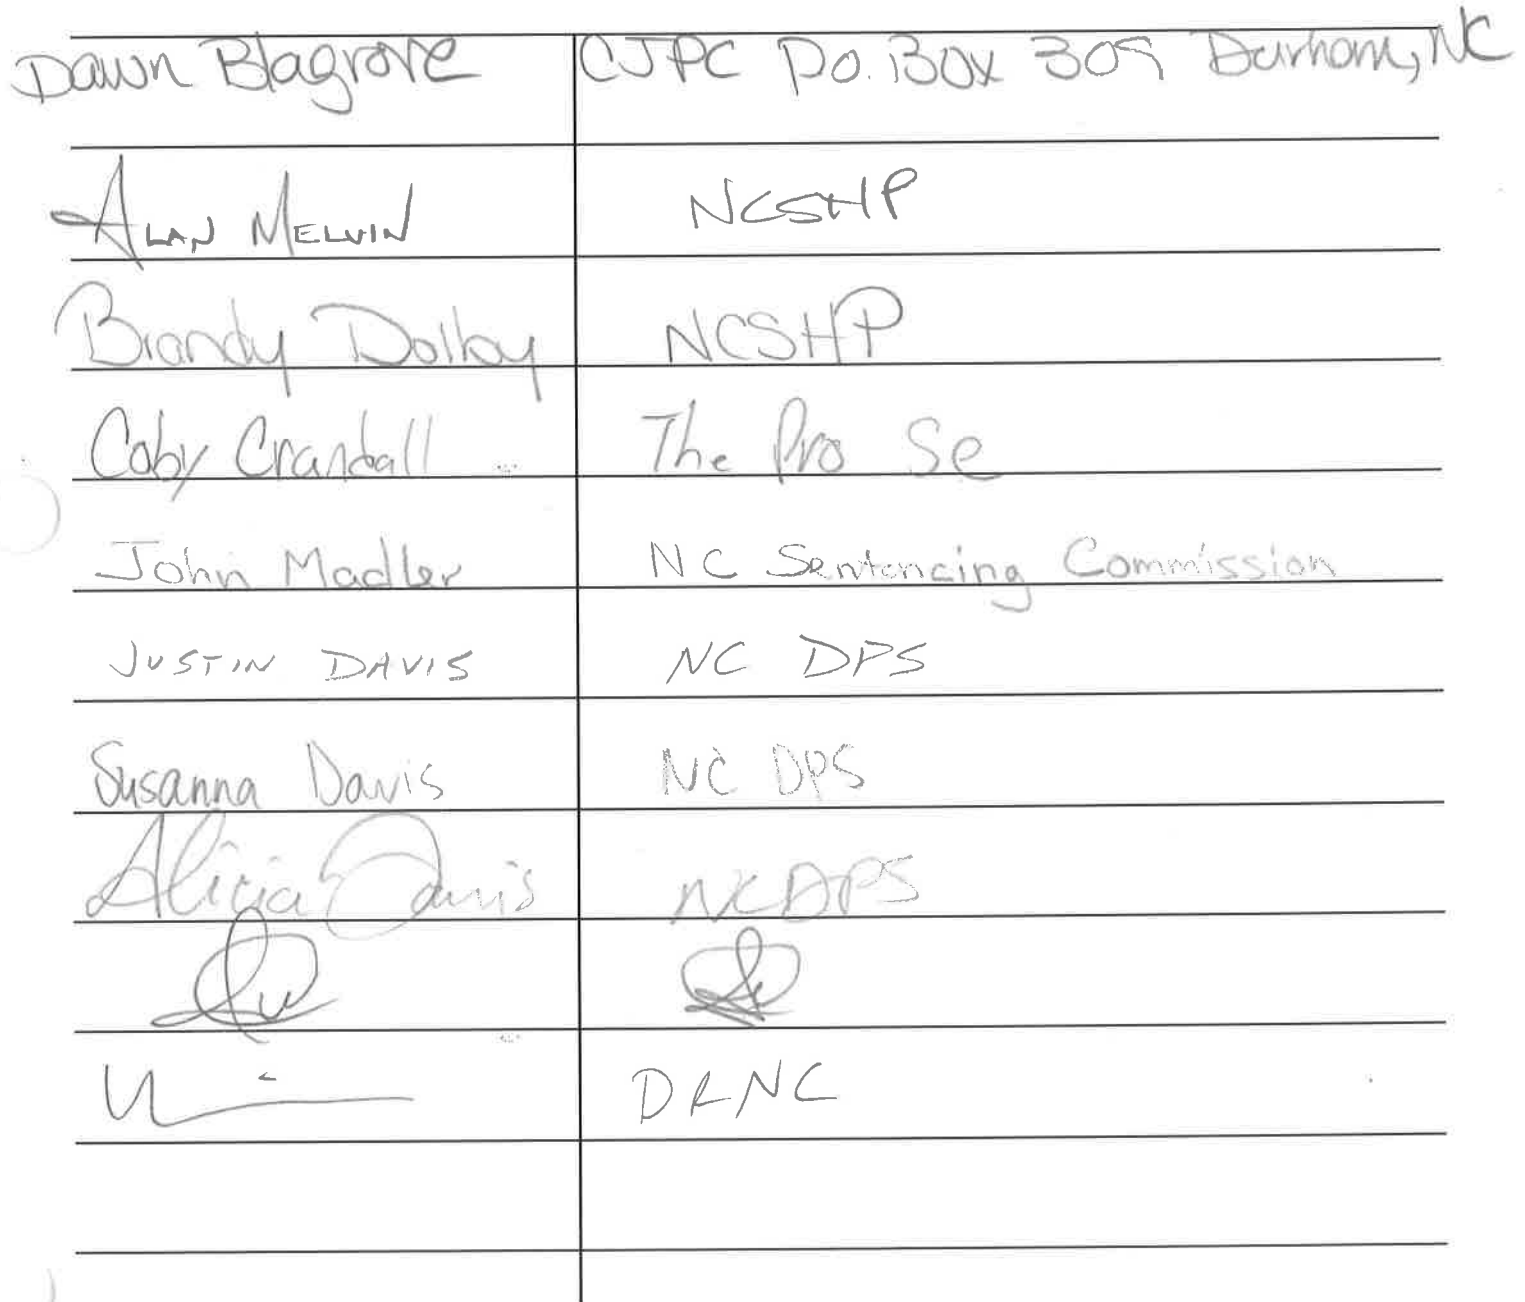 Dawn Blagrove CJPC P.O. Box 309 Durham, NC
Alan Melvin NCSHP
Brandy Dolby NCSHP
Coby Crandall The Pro Se
John Madler NC Sentencing Commission
JUSTIN DAVIS NC DPS
Susanna Davis NC DPS
Alicia Davis NCDPS
DRNC